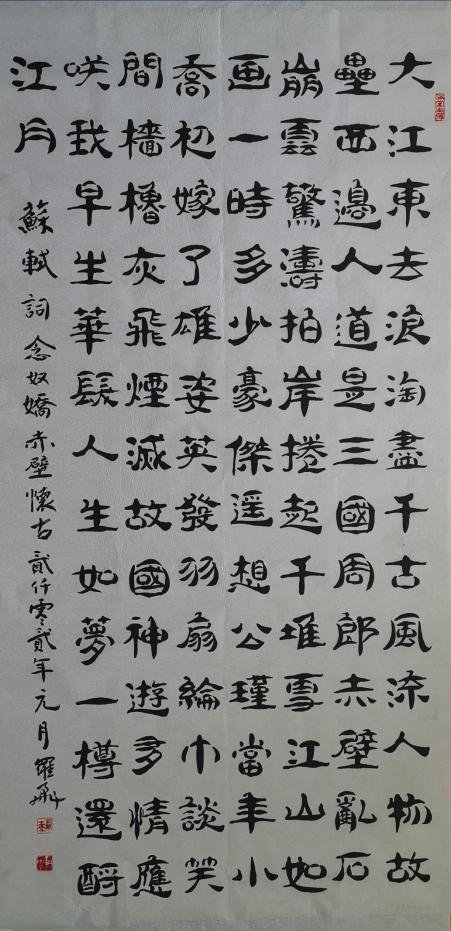 大江東去浪淘盡千古風流人物故
壘西邊人道是三國周郎赤壁亂石
崩雲驚濤拍岸捲起千堆雪江山如
画一時多少豪傑遥想公瑾當年小
喬初嫁了雄姿英發羽扇綸巾談笑
間檣櫓灰飛煙滅故國神遊多情應
咲我早生華髮人生如夢一樽還酹
江月
蘇軾詞念奴嬌赤壁懷古貳仟零貳年元月羅